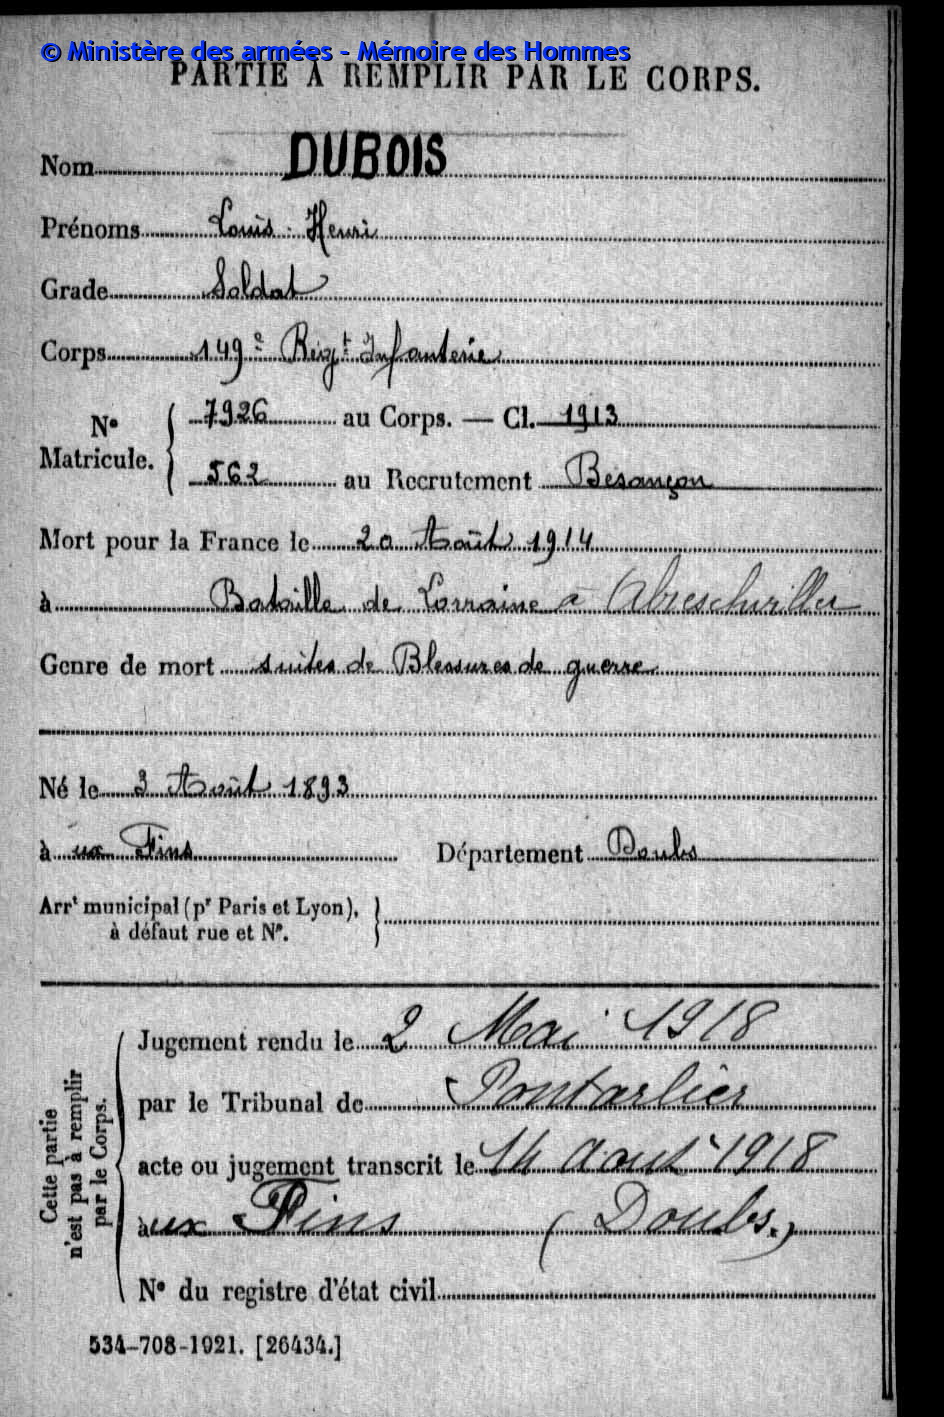 © Ministère des armées - Mémoire des Hommes
PARTIE À REMPLIR PAR LE CORPS.
Nom DUBOIS
Prénoms Louis Henri
Grade Soldat
Corps 149e Regt Infanterie
No Matricule. { 7926 au Corps. — Cl. 1913
562 au Recrutement Besançon
Mort pour la France le 20 Août 1914
à Bataille de Lorraine à Abreschviller
Genre de mort suites de Blessures de guerre
Né le 3 Août 1893
à ux Fins Département Doubs
Arrt municipal (pr Paris et Lyon), }
à défaut rue et No.
Cette partie
n'est pas à remplir
par le Corps.
Jugement rendu le 2 Mai 1918
par le Tribunal de Pontarlier
acte ou jugement transcrit le 14 Aout 1918
àux Fins (Doubs.)
No du registre d'état civil
534-708-1921. [26434.]